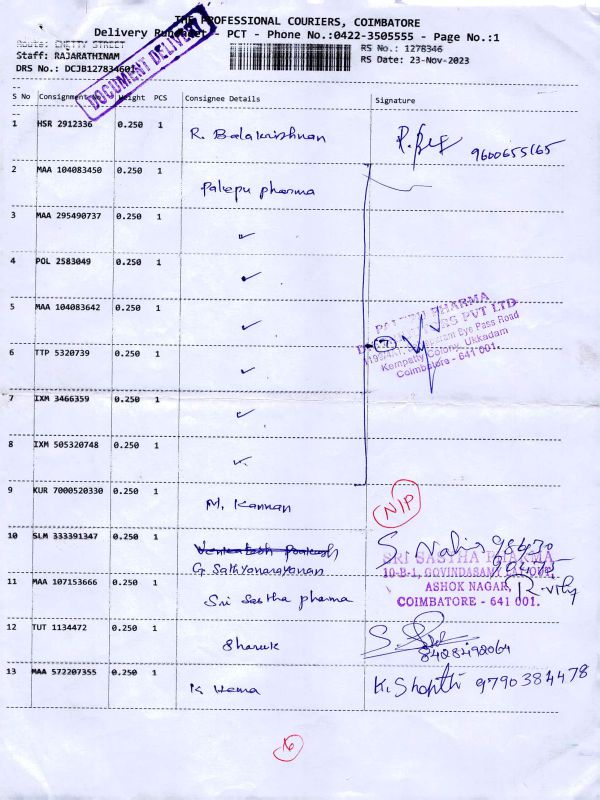 THE PROFESSIONAL COURIERS, COIMBATORE
Delivery Runsheet - PCT - Phone No.:0422-3505555 - Page No.:1
Route: CHETTY STREET
RS No.: 1278346
Staff: RAJARATHINAM
RS Date: 23-Nov-2023
DRS No.: DCJB127834601
DOCUMENT DELIVERY
S No Consignment No Weight PCS Consignee Details Signature
1 HSR 2912336 0.250 1 R. Balakrishnan 9600655165
2 MAA 104083450 0.250 1 Palepu pharma
3 MAA 295490737 0.250 1 ✓
4 POL 2583049 0.250 1 ✓
5 MAA 104083642 0.250 1 ✓
PHARMA
PVT LTD
Bye Pass Road
6 TTP 5320739 0.250 1 ✓ 7
Colony, Ukkadam
Coimbatore - 641 001.
7 IXM 3466359 0.250 1 ✓
8 IXM 505320748 0.250 1 ✓
9 KUR 7000520330 0.250 1 M. Kannan NIP
10 SLM 333391347 0.250 1
G. Sathyanarayanan
SRI SASTHA PHARMA
10-B-1, GOVINDASAMY
11 MAA 107153666 0.250 1 Sri Sastha pharma
ASHOK NAGAR,
COIMBATORE - 641 001.
12 TUT 1134472 0.250 1 Sharuk
8428492064
13 MAA 572207355 0.250 1 K Hema K. Shanthi 9790384478